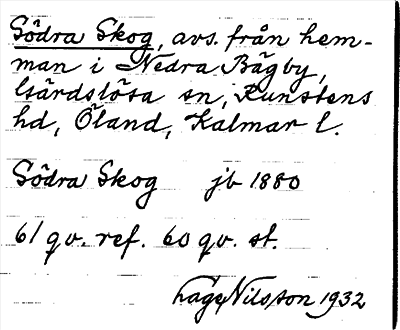 Södra Skog, avs. från hem-
man i Nedra Bägby,
Gärdslösa sn, Runstens
hd, Öland, Kalmar l.
Södra Skog jb 1880
61 gv. ref. 60 gv. st.
Hage Nilsson 1932